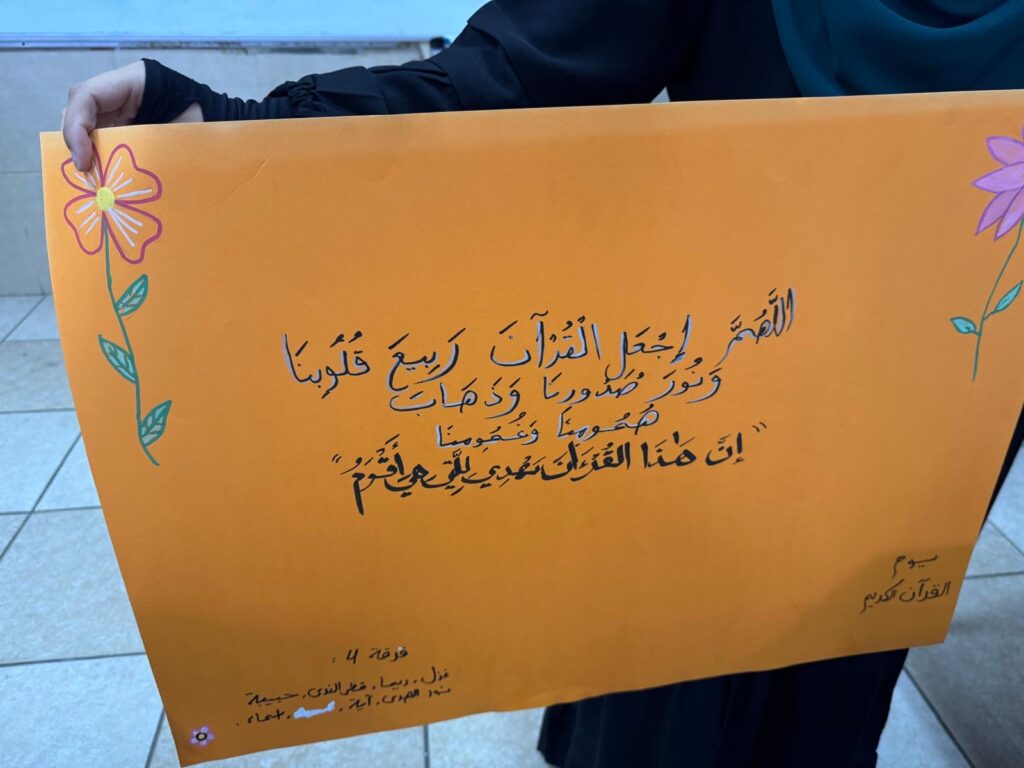 اللَّهُمَّ إجْعَل الْقُرْآنَ رَبِيعَ قُلُوبِنَا
وَنُورَ صُدُورِنَا وَذَهَابَ
هُمُومِنَا وَغُمُومِنَا
"إنَّ هَٰذَا الْقُرْءَانَ يَهْدِي لِلَّتِي هِيَ أَقْوَمُ"
يوم
القرآن الكريم
فرقة 4 :
قطر الندى، حبيبة
نور الهدى، آية، اسماء.